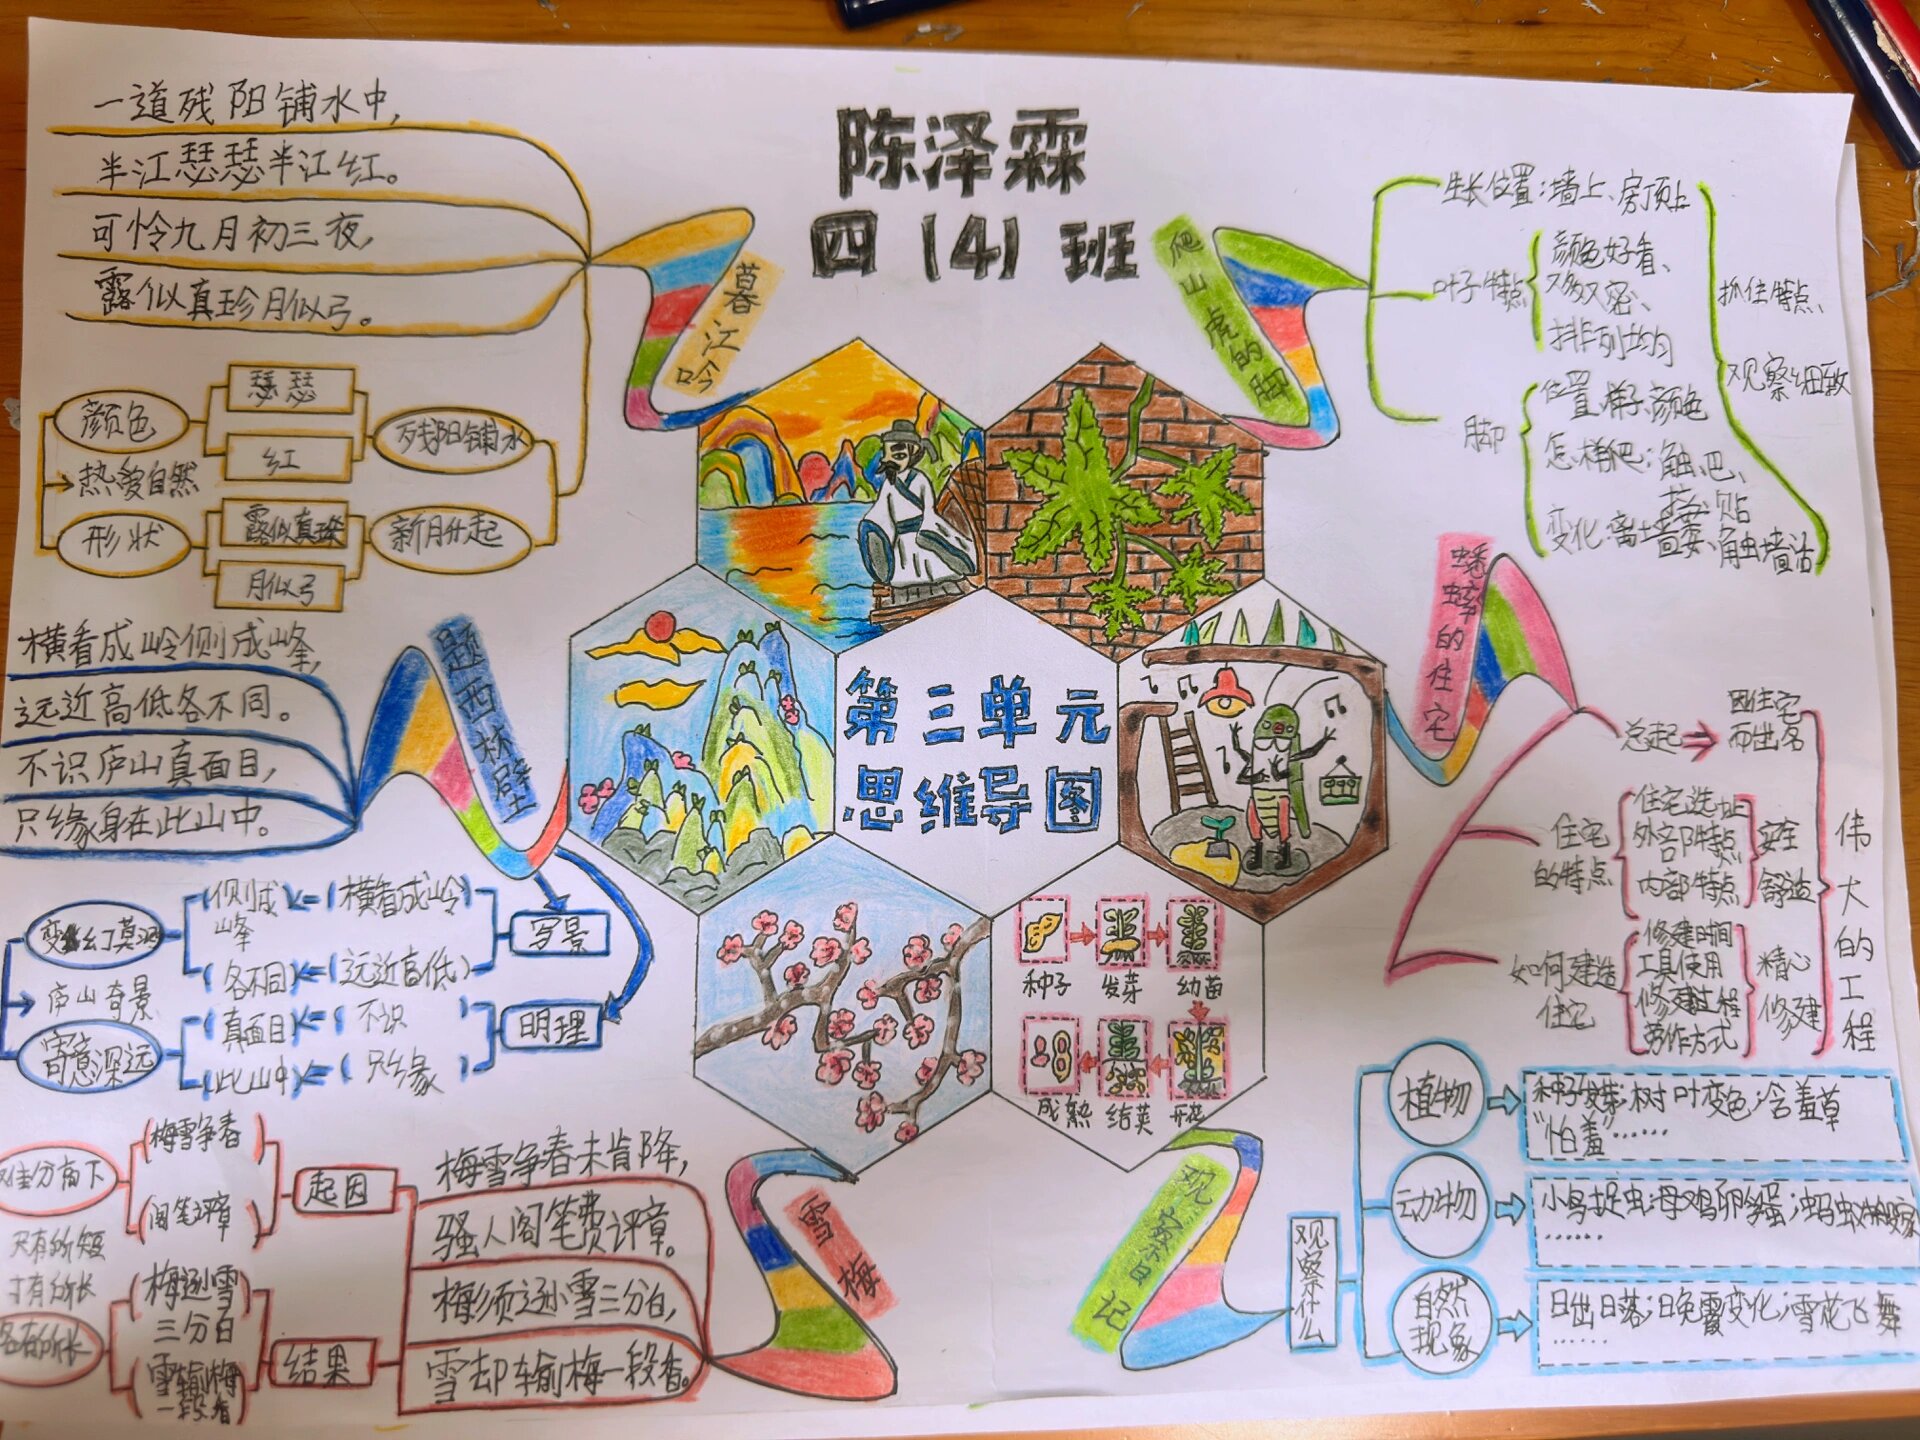 陈泽霖
四（4）班
第三单元
思维导图
暮江吟
一道残阳铺水中，
半江瑟瑟半江红。
可怜九月初三夜，
露似真珍月似弓。
颜色
瑟瑟
红
残阳铺水
热爱自然
形状
露似真珠
月似弓
新月升起
题西林壁
横看成岭侧成峰，
远近高低各不同。
不识庐山真面目，
只缘身在此山中。
写景
横看成岭
侧成
峰
远近高低
各不同
变幻莫测
庐山奇景
明理
不识
真面目
只缘
此山中
寓意深远
雪梅
梅雪争春未肯降，
骚人阁笔费评章。
梅须逊雪三分白，
雪却输梅一段香。
起因
梅雪争春
阁笔评章
难分高下
尺有所短
寸有所长
结果
梅逊雪
三分白
雪输梅
一段香
各有所长
爬山虎的脚
生长位置：墙上、房顶上
叶子特点
颜色好看、
又多又密、
排列均匀
脚
位置、样子、颜色
怎样爬：触、巴、
拉、贴
变化：离墙萎、触墙沾
抓住特点、
观察细致
蟋蟀的住宅
总起
因住宅
而出名
住宅
的特点
住宅选址
外部特点
内部特点
安全
舒适
如何建造
住宅
修建时间
工具使用
修建过程
劳作方式
精心
修建
伟大的工程
种子
发芽
幼苗
成熟
结荚
开花
观察日记
观察什么
植物
种子发芽；树叶变色；含羞草
“怕羞”……
动物
小鸟捉虫；母鸡卵蛋；蚂蚁搬家
……
自然
现象
日出日落；日晚霞变化；雪花飞舞
……